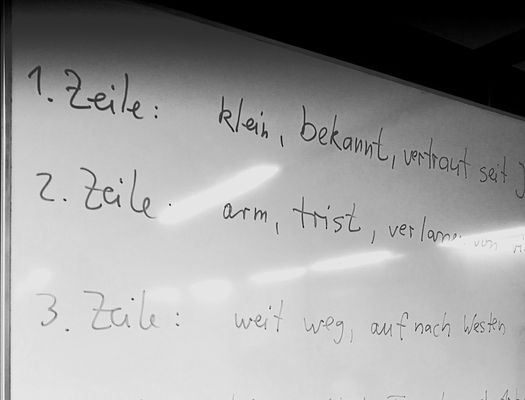 1. Zeile: klein, bekannt, vertraut seit
2. Zeile: arm, trist, von
3. Zeile: weit weg, auf nach Westen